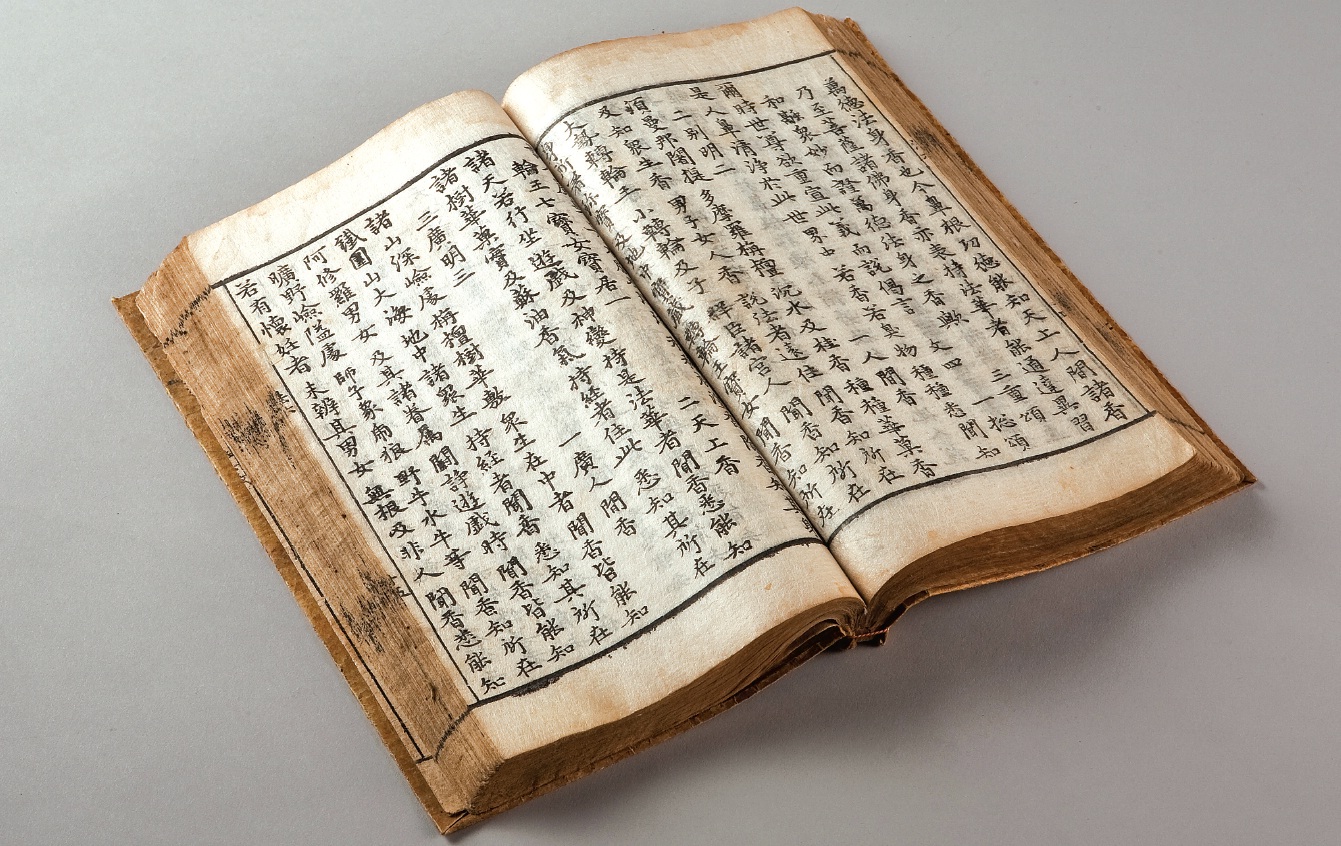 萬德法身香也今鼻根功德能知天上人間諸香
乃至菩薩諸佛身香亦表持法華者能通達異習
和融衆妙而證萬德法身之香歟 文四 三重頌
爾時世尊欲重宣此義而說偈言 一揔頌
是人鼻清淨 於此世界中 若香若臭物 種種悉聞知
二別明二 一人間香
須曼那闍提 多摩羅栴檀 沉水及桂香 種種華菓香
及知衆生香 男子女人香 說法者遠住 聞香知所在
大勢轉輪王 小轉輪及子 群臣諸宮人 聞香知所在
身所著珍寶 及地中寶藏 轉輪王寶女 聞香知所在
輪王七寶女寶居一 二天上香
諸天若行坐 遊戲及神變 持是法華者 聞香悉能知
諸樹華菓實 及蘇油香氣 持經者住此 悉知其所在
三廣明三 一廣人聞香
諸山深嶮處 栴檀樹華敷 衆生在中者 聞香皆能知
鐵圍山大海 地中諸衆生 持經者聞香 悉知其所在
阿修羅男女 及其諸眷屬 鬪諍遊戲時 聞香皆能知
曠野嶮隘處 師子象虎狼 野牛水牛等 聞香知所在
若有懷妊者 未辨其男女 無根及非人 聞香悉能知